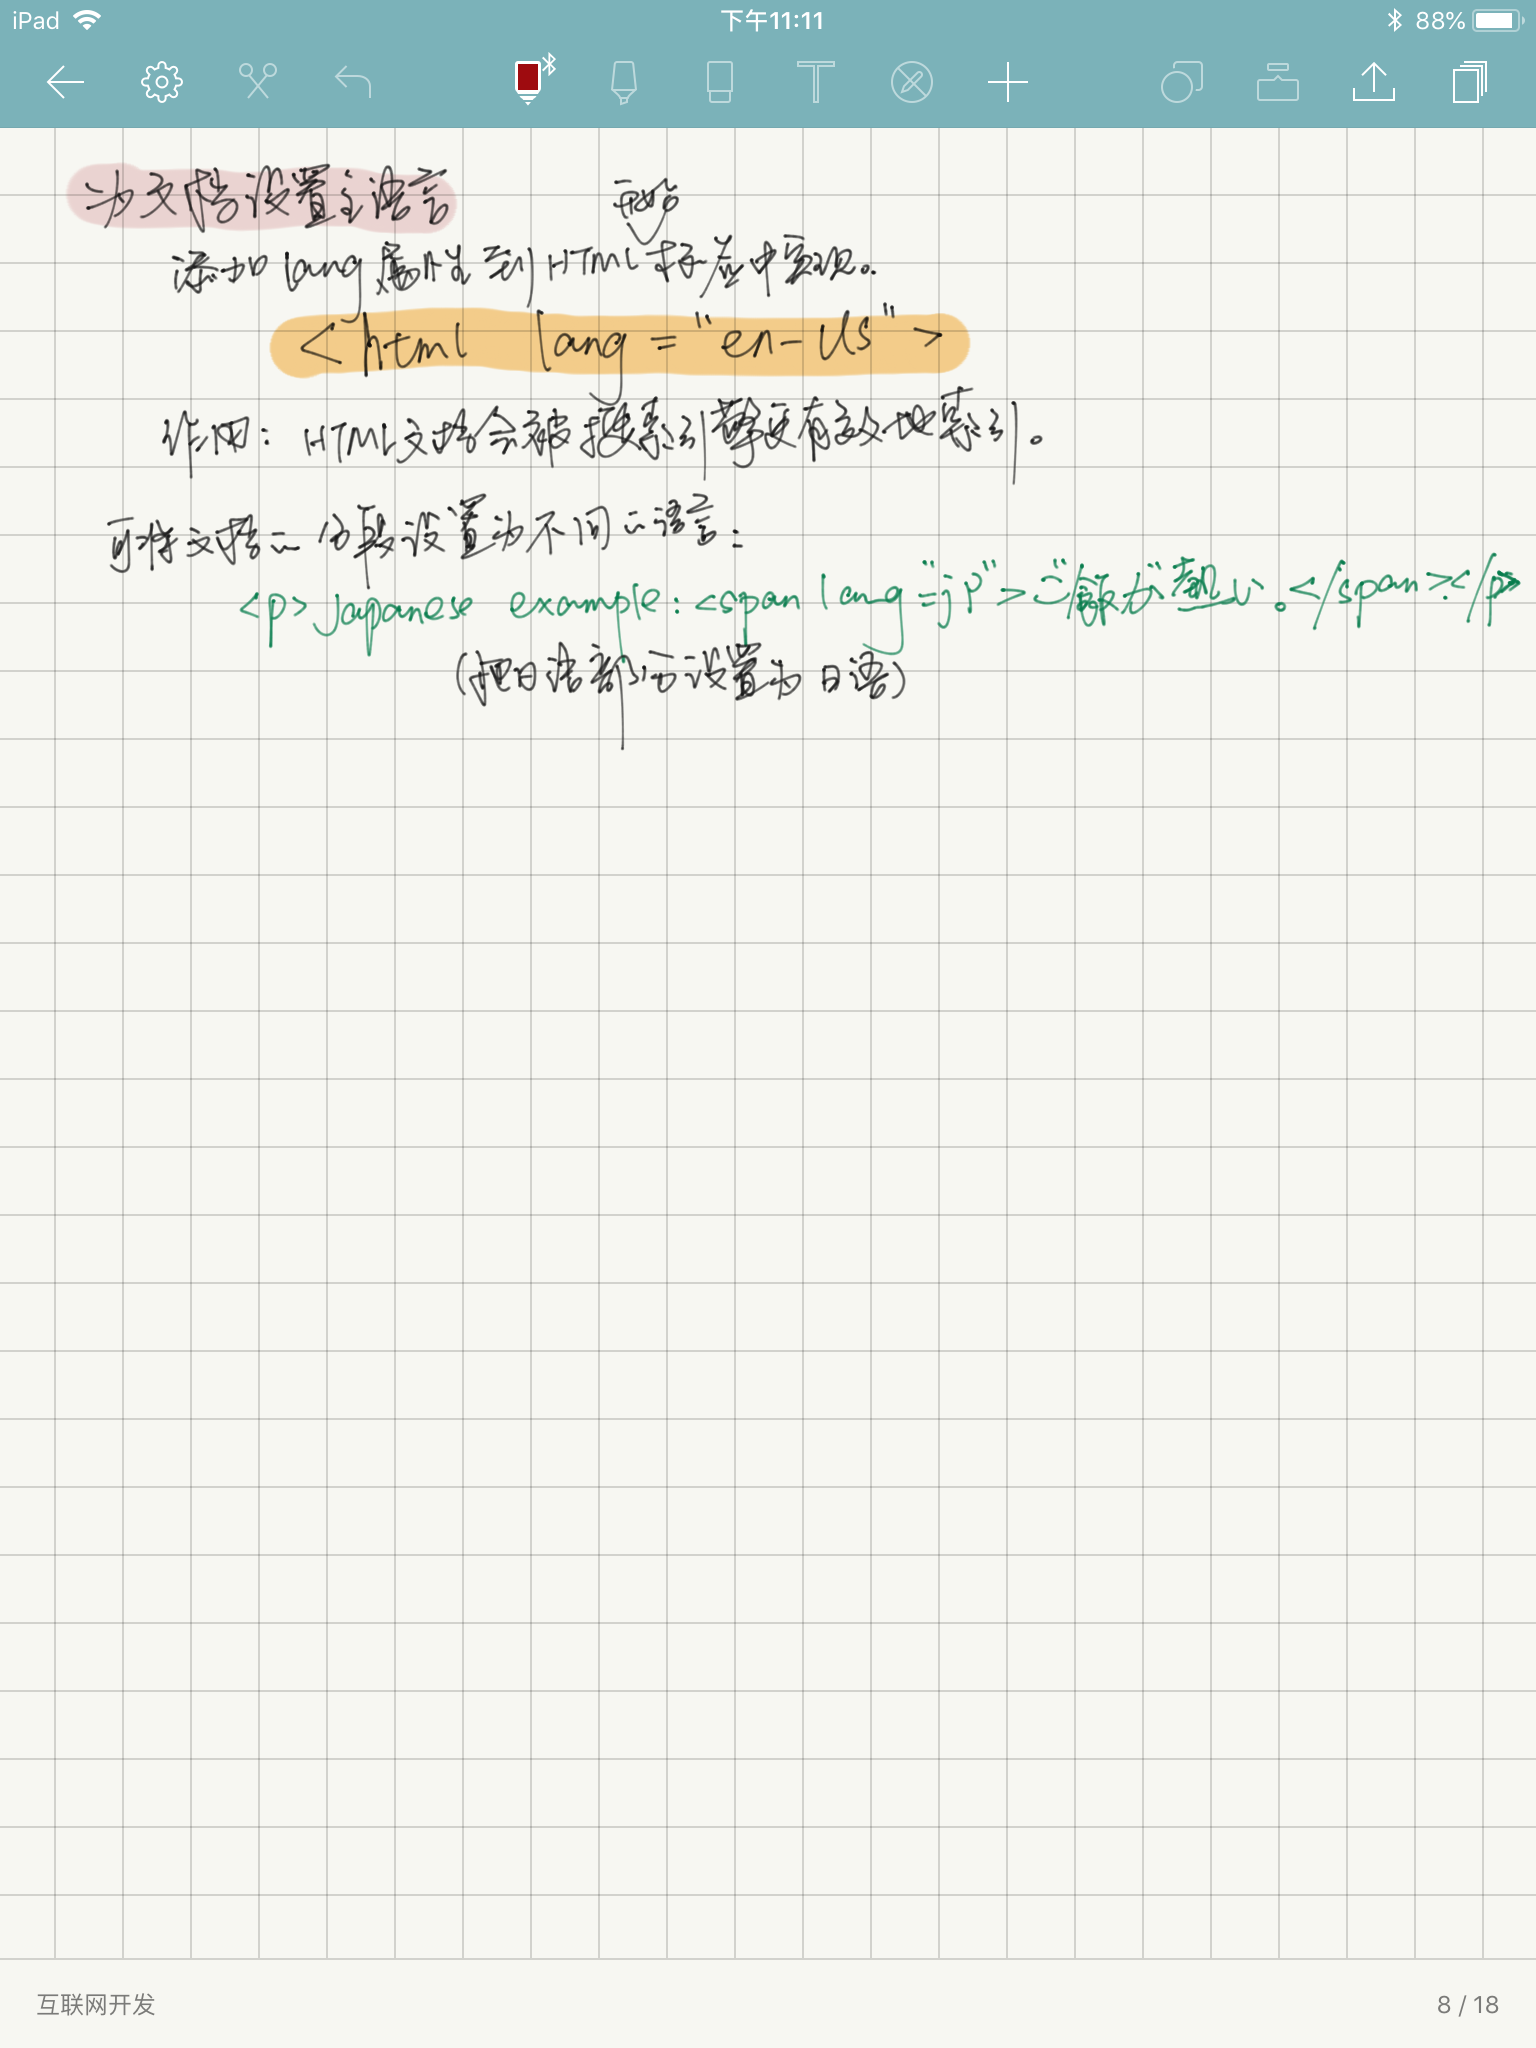 iPad 下午11:11 88%
为文档设置主语言
开始
添加lang属性到HTML标签中实现。
<html lang="en-US">
作用：HTML文档会被搜索引擎更有效地索引。
可将文档的分段设置为不同的语言：
<p>Japanese example:<span lang="jp">ご飯が熱い。</span>.</p>
(把日语部分设置为日语)
互联网开发 8 / 18